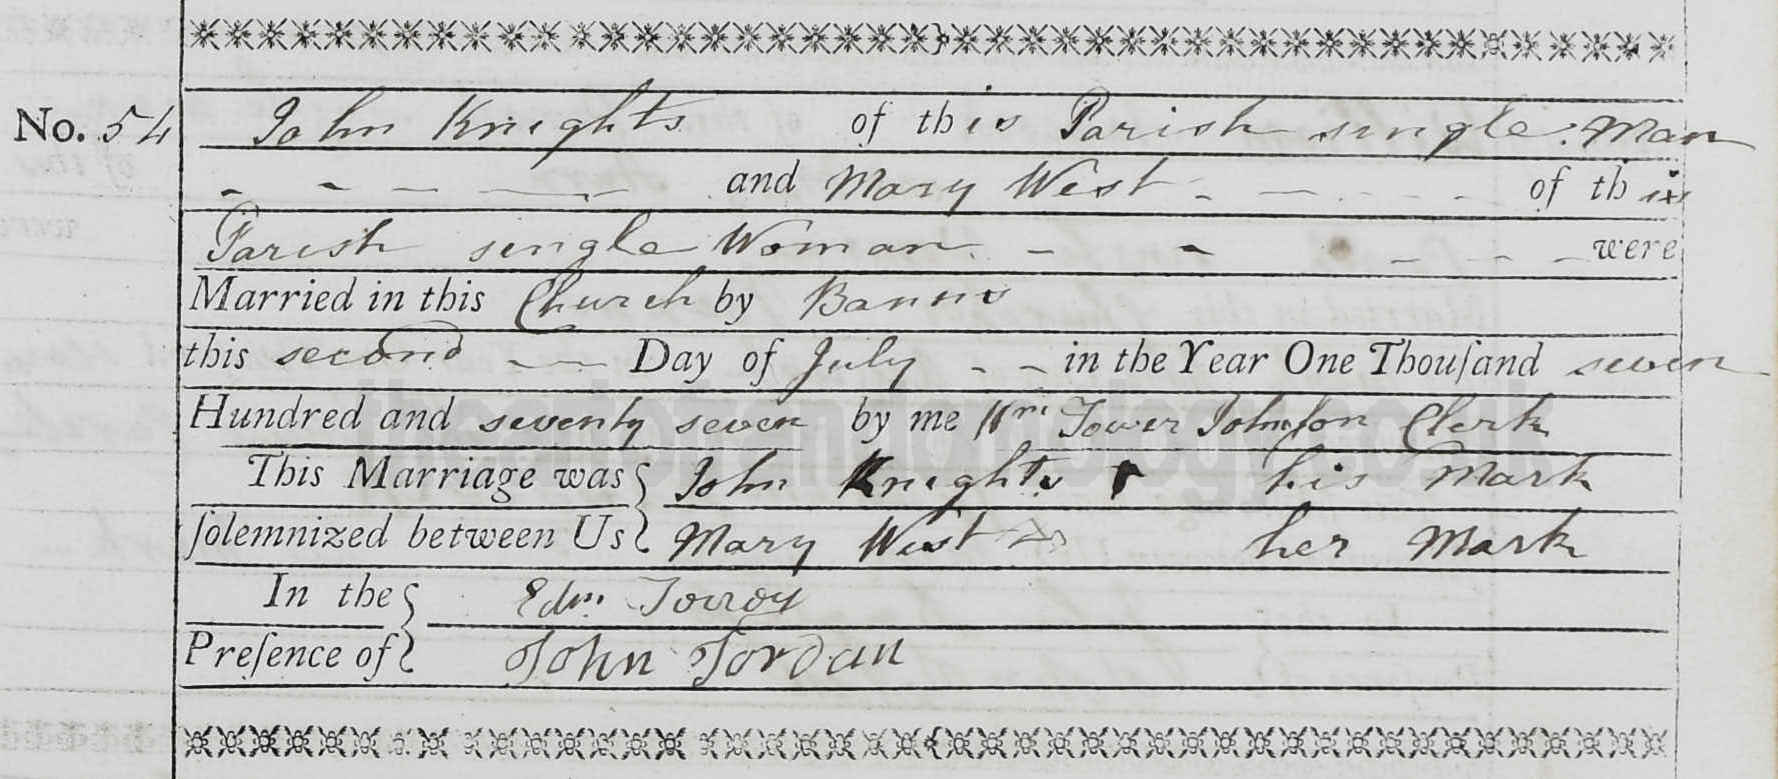 No. 54 John Knights of this Parish single Man
and Mary West of this
Parish single Woman were
Married in this Church by Banns
this second Day of July in the Year One Thouſand seven
Hundred and seventy seven by me Wm Tower Johnſon Clerk
This Marriage was John Knights his Mark
ſolemnized between Us Mary West her Mark
In the Edm
Preſence of John Jordan